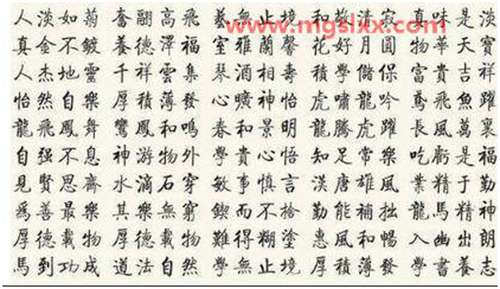 www.mgslxx.com
人淡如菊 奮翮高飛 藝無止境 和敬清寂 真味是淡
真金不鍍 養德澤福 室雅蘭馨 花好月圓 物華天寶
人杰地靈 千祥雲集 琴酒相壽 積學儲保 富貴吉祥
怡然自樂 厚積薄發 心曠神怡 虎嘯龍吟 鳶飛魚躍
龍飛鳳舞 鸞鳳和鳴 春和景明 龍騰虎躍 長風萬裏
自强不息 神游物外 和貴心悟 知足常樂 吃虧是福
見賢思齋 水滴石穿 學敏事慎言 漢唐雄風 業精于勤
為善最樂 其樂無窮 鍥而不捨 勤能補拙 龍馬精神
厚德載物 厚德載物 難得糊塗 惠風和暢 入幽出朗
馬到功成 道法自然 學無止境 厚積薄發 學書養志